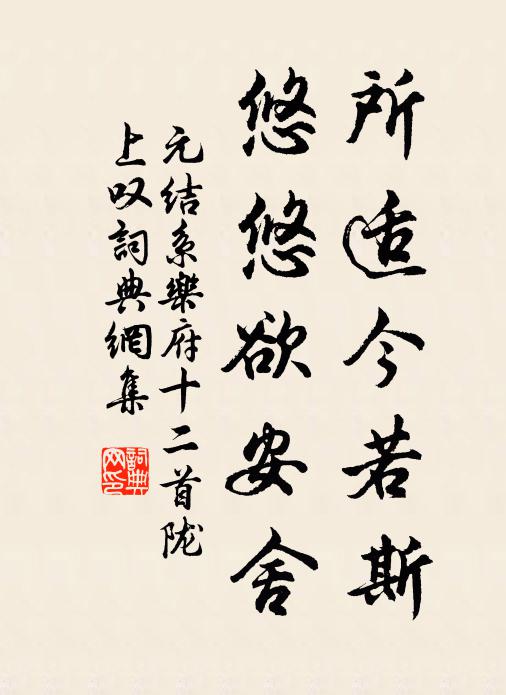 所适今若斯
悠悠欲安舍
元结系樂府十二首陇
上叹詞典網集
詞典网印